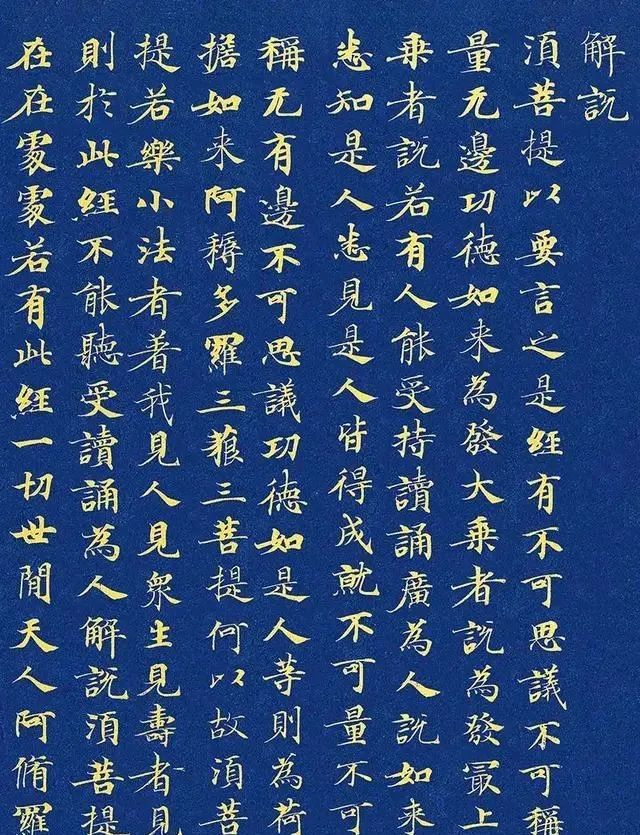 解說
須菩提以要言之是經有不可思議不可稱
量无邊功德如来為發大乗者說為發冣上
乗者說若有人能受持讀誦廣為人說如来
悉知是人悉見是人皆得成就不可量不可
稱无有邊不可思議功德如是人等則為荷
擔如来阿耨多羅三藐三菩提何以故須菩
提若樂小法者着我見人見衆生見壽者見
則於此經不能聽受讀誦為人解說須菩提
在在處處若有此經一切世間天人阿脩羅